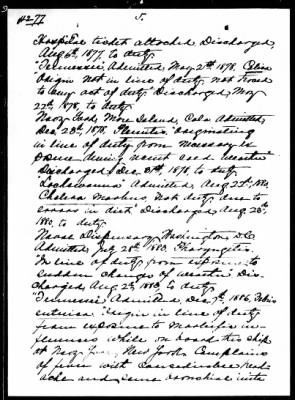 4277 5.
Hospital ticket attached. Discharged
Aug. 6th, 1877, to duty.
"Tennessee," Admitted, May 21st 1878,
Origin not in line of duty, not traced
to any act of duty. Discharged, May
22nd, 1878, to duty.
Navy Yard, Mare Island, Cala. Admitted,
Dec. 23rd, 1878, Pleuritis. originating
in line of duty from necessary
during recent cold weather.
Discharged Dec. 31st, 1878, to duty.
"Lackawanna" Admitted, Aug. 22nd, 1880,
Cholera Morbus, Not duty, due to
errors in diet. Discharged, Aug. 26th,
1880, to duty.
Naval Dispensary, Washington, D.C.
Admitted, 20th 1883, Pharyngitis.
In line of duty from exposure to
sudden changes of weather. Dis-
charged, 2nd, 1883, to duty.
"Tennessee" Admitted, Dec. 7th, 1886, Febris
enterica. Origin in line of duty
from exposure to in-
fluences while on board this ship
at Navy Yard, New York. Complains
of pain with considerable head-
ache and some with